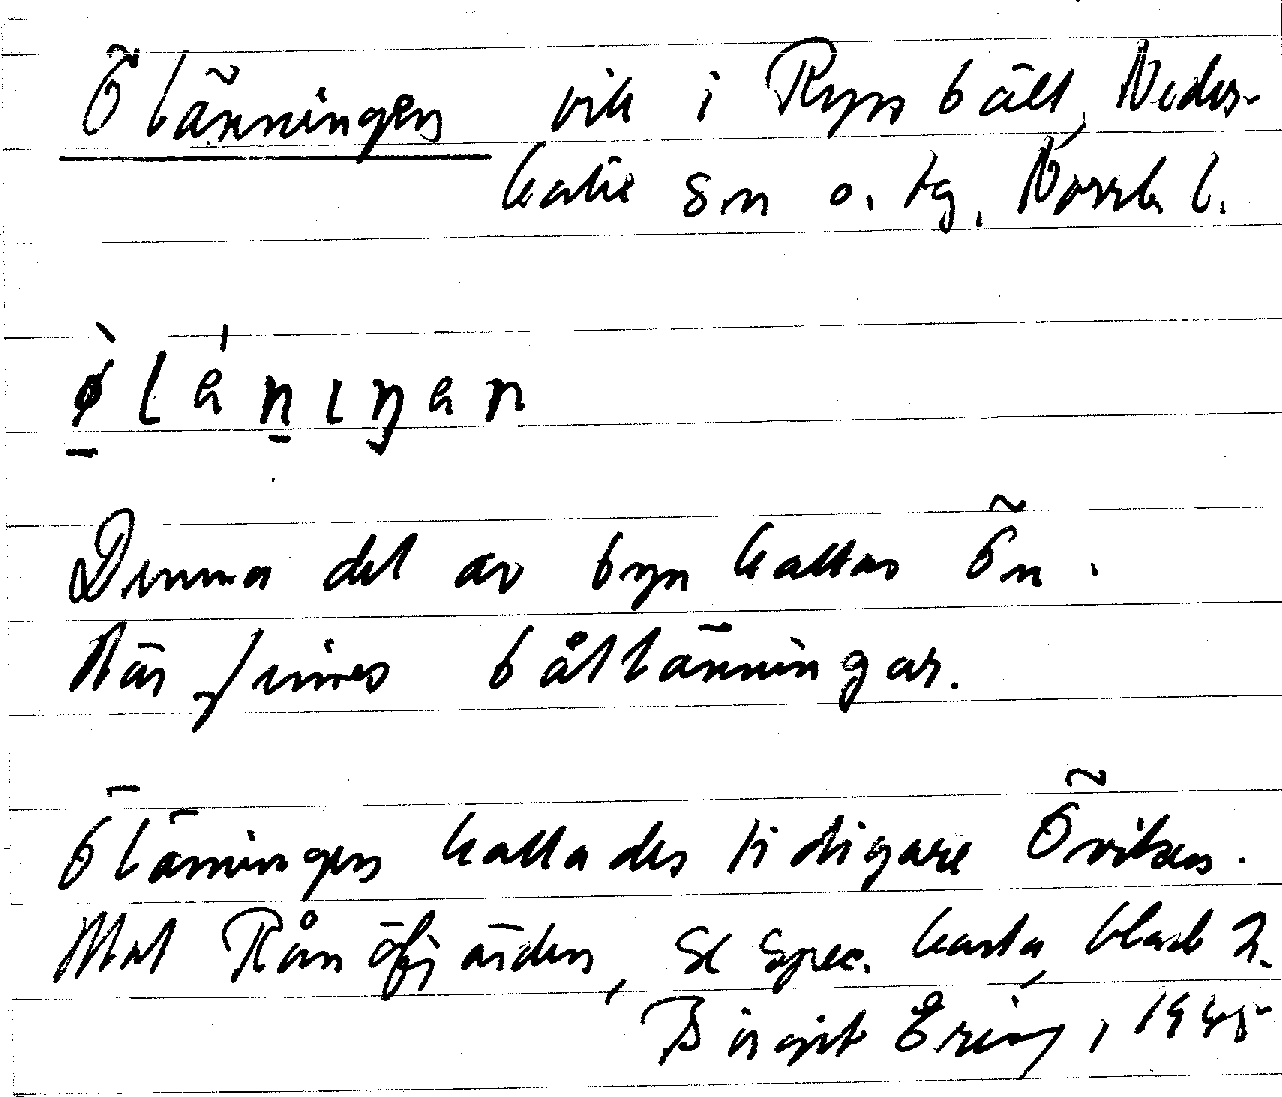 Ölänningen vik i Ryssbält, Neder-
kalix sn o. tg. Norrb. l.
ø̀lániŋan
Denna del av byn kallas Ön.
Här finnes båtlänningar.
Ölänningen kallades tidigare Öviken.
Mot Rånöfjärden, se spec. karta, blad 2.
Birgit Ering, 1945